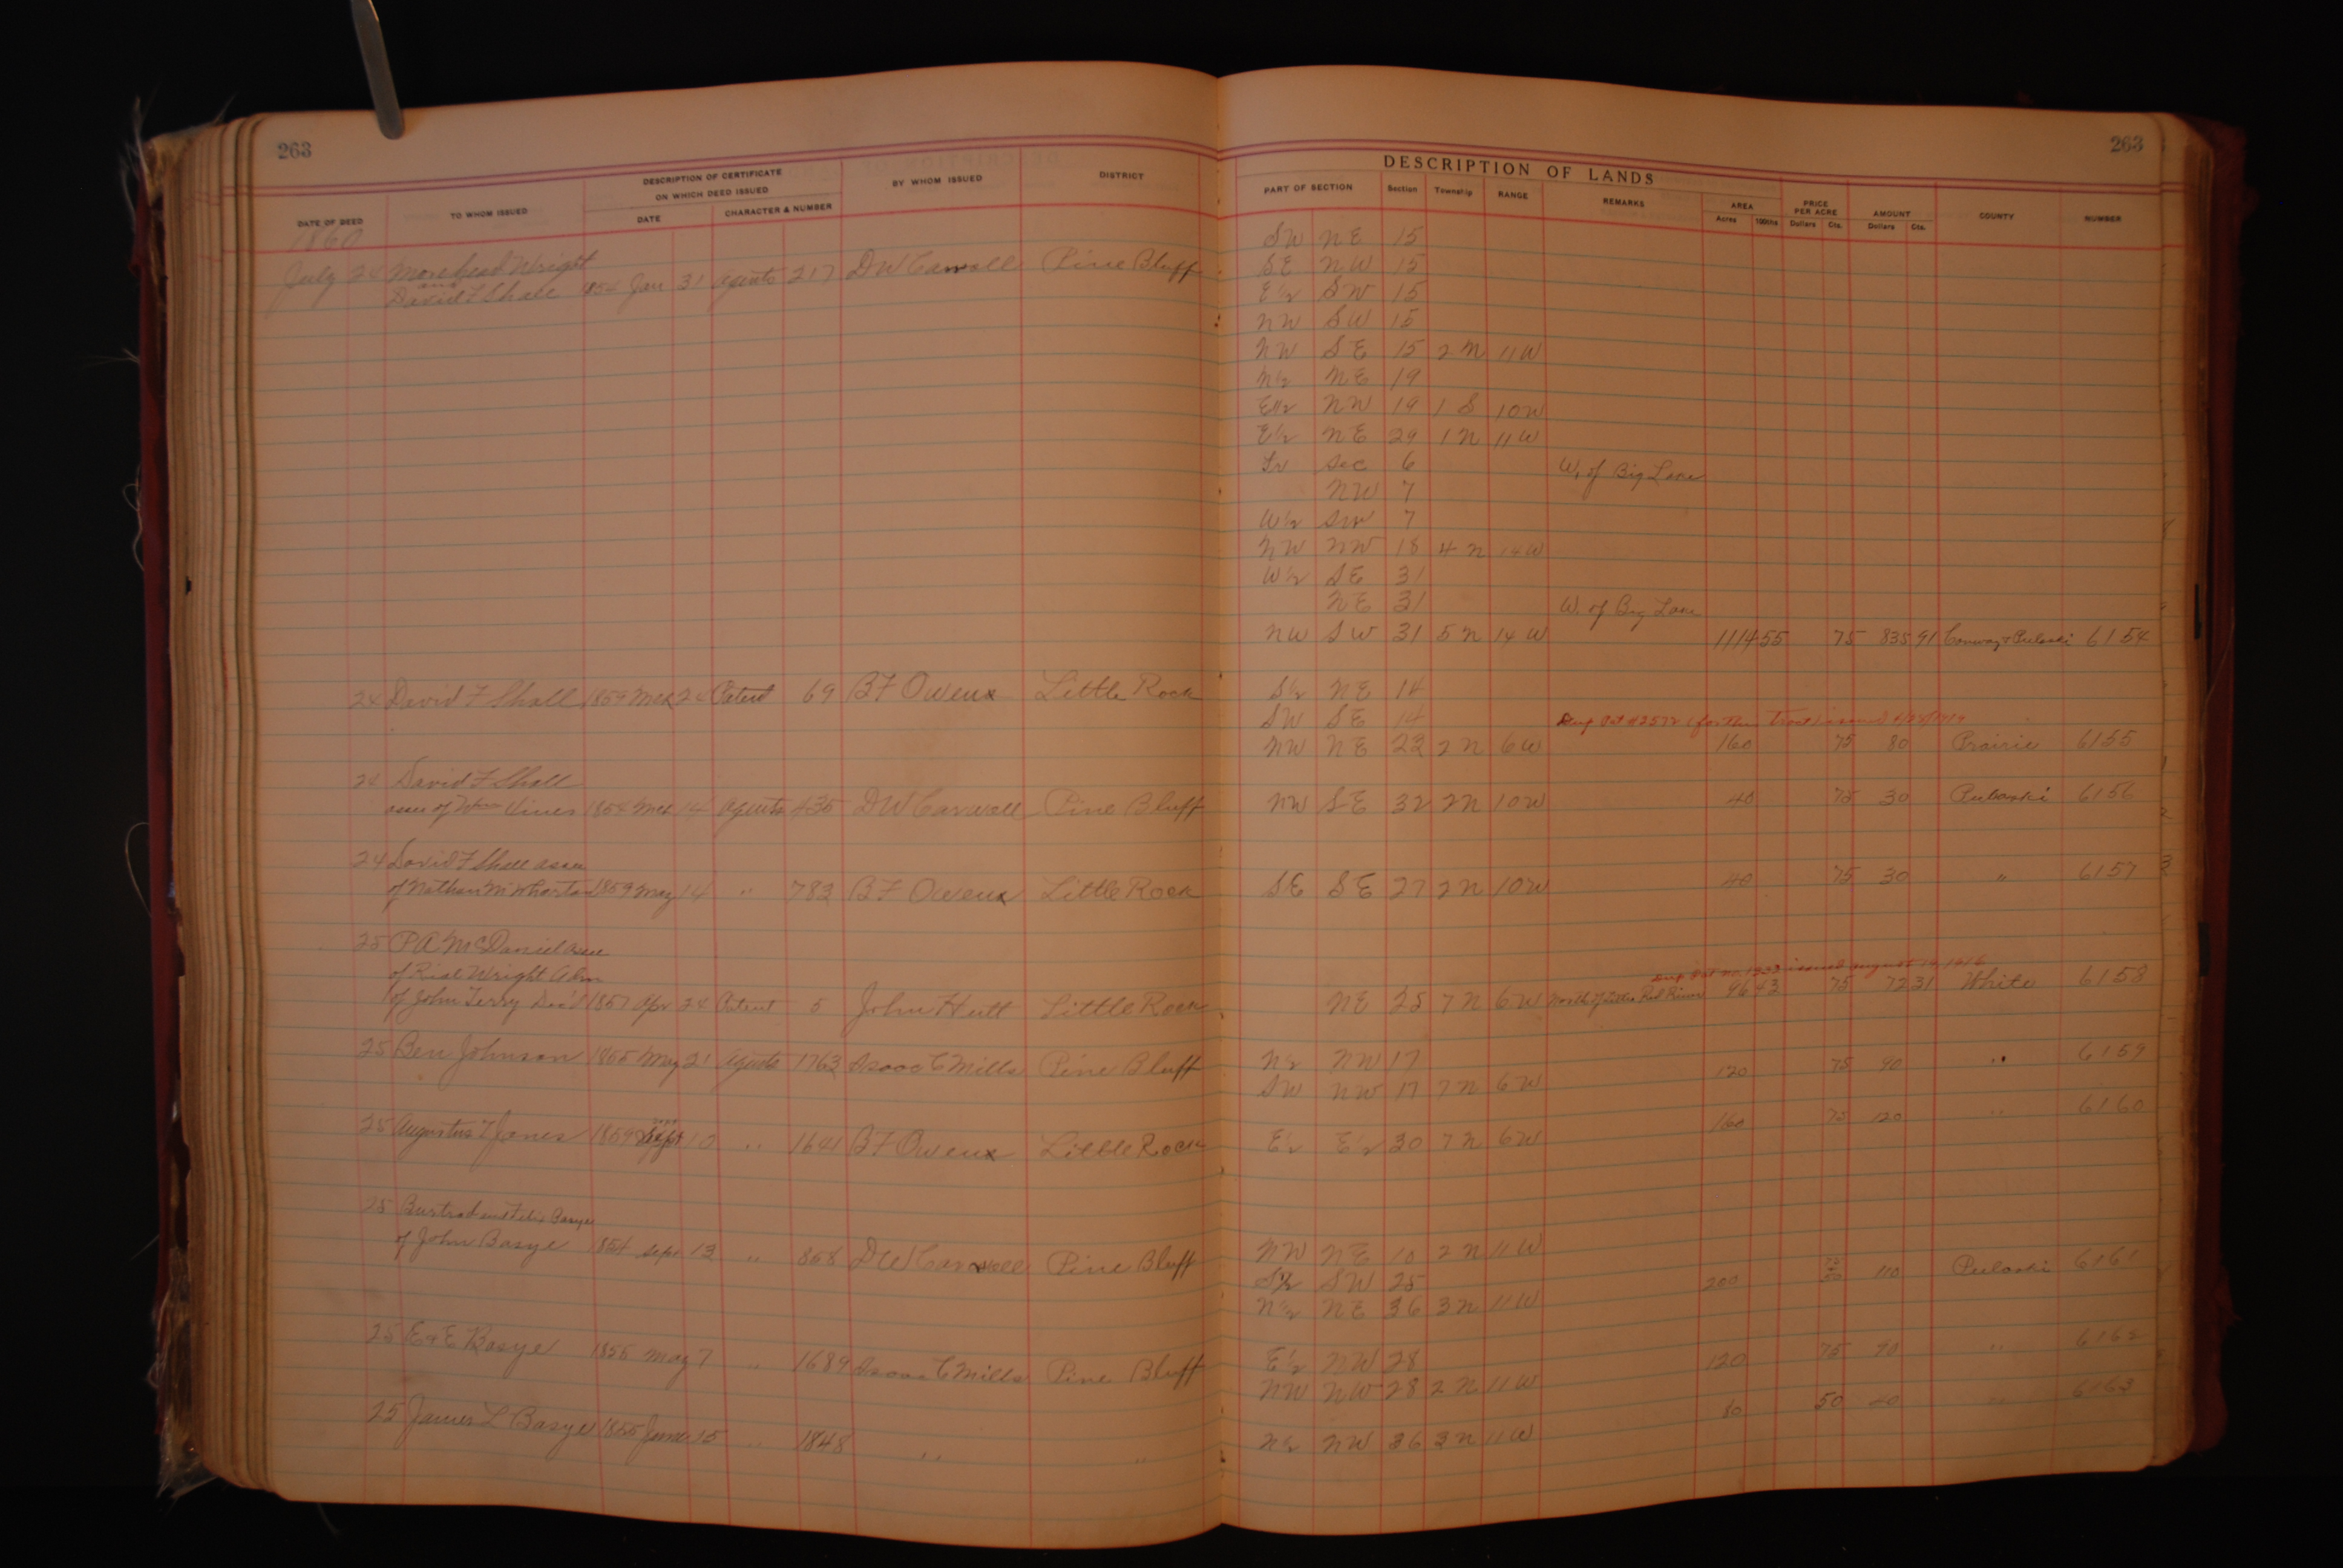 263
DESCRIPTION OF CERTIFICATE
ON WHICH DEED ISSUED
DATE OF DEED TO WHOM ISSUED DATE CHARACTER & NUMBER BY WHOM ISSUED DISTRICT
1860
July 24 Morehead Wright
and
David F Shall 1854 Jan 31 Agents 217 D W Carroll Pine Bluff
24 David F Shall 1859 Mch 24 Patent 69 B F Owens Little Rock
24 David F Shall
assee of Wm Vines 1854 Mch 14 Agents 436 D W Carroll Pine Bluff
24 David F Shall assee
of Nathan M Wharton 1859 May 14 " 783 B F Owens Little Rock
25 P A McDaniel assee
of Rial Wright Adm
of John Terry Dec'd 1857 Apr 24 Patent 5 John Hutt Little Rock
25 Ben Johnson 1855 May 21 Agents 1763 Isaac C Mills Pine Bluff
25 Augustus F Jones 1859 Sept 10 " 1641 B F Owens Little Rock
25
of John Basye 1854 Sept 13 " 858 D W Carroll Pine Bluff
25 E & E Basye 1855 May 7 " 1689 Isaac C Mills Pine Bluff
25 James L Basye 1855 June 15 " 1848 " "
263
DESCRIPTION OF LANDS
PART OF SECTION Section Township RANGE REMARKS AREA PRICE PER ACRE AMOUNT COUNTY NUMBER
Acres 100ths Dollars Cts. Dollars Cts.
SW NE 15
SE NW 15
E½ SW 15
NW SW 15
NW SE 15 2 N 11 W
N½ NE 19
E½ NW 19 1 S 10 W
E½ NE 29 1 N 11 W
Fr Sec 6 W. of Big Lake
NW 7
W½ SW 7
NW NW 18 4 N 14 W
W½ SE 31
NE 31 W. of Big Lake
NW SW 31 5 N 14 W 1114 55 75 835 91 Conway & Pulaski 6154
S½ NE 14
SW SE 14
NW NE 23 2 N 6 W 160 75 80 Prairie 6155
NW SE 32 2 N 10 W 40 75 30 Pulaski 6156
SE SE 27 2 N 10 W 40 75 30 " 6157
issued August
NE 25 7 N 6 W North of Little Red River 96 43 75 72 31 White 6158
N½ NW 17 120 75 90 " 6159
SW NW 17 7 N 6 W
160 75 120 " 6160
E½ E½ 30 7 N 6 W
NW NE 10 2 N 11 W
S½ SW 25 200 110 Pulaski 6161
N½ NE 36 3 N 11 W
E½ NW 28 120 75 90 " 6162
NW NW 28 2 N 11 W
80 50 40 " 6163
N½ NW 36 3 N 11 W